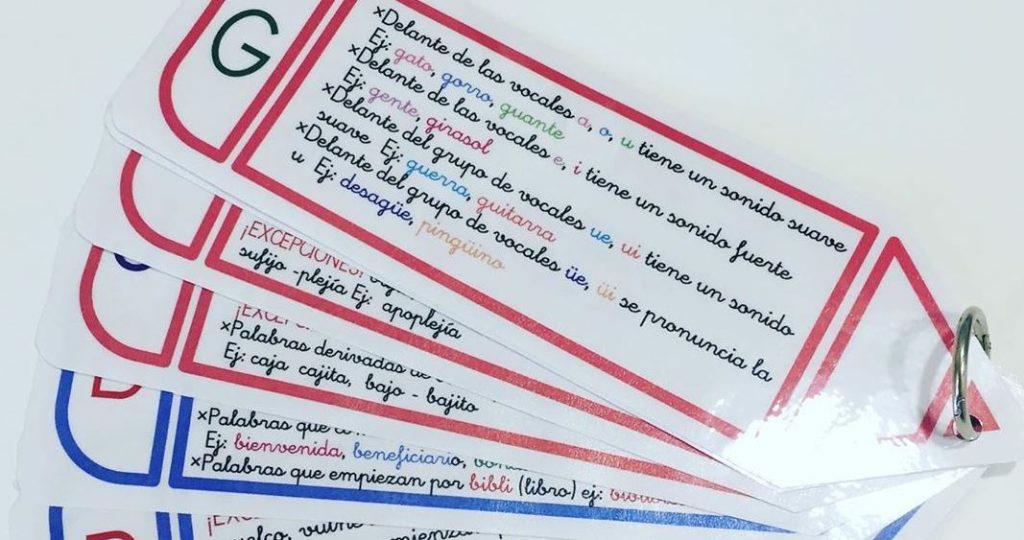 G
×Delante de las vocales a, o, u tiene un sonido suave
Ej: gato, gorro, guante
×Delante de las vocales e, i tiene un sonido fuerte
Ej: gente, girasol
×Delante del grupo de vocales ue, ui tiene un sonido
suave Ej: guerra, guitarra
×Delante del grupo de vocales üe, üi se pronuncia la
u Ej: desagüe, pingüino
¡EXCEPCIONES!
sufijo -plejía Ej: apoplejía
×Palabras derivadas de
Ej: caja cajita, bajo - bajito
×Palabras que
Ej: bienvenida, beneficiario,
×Palabras que empiezan por bibli (libro-) ej: